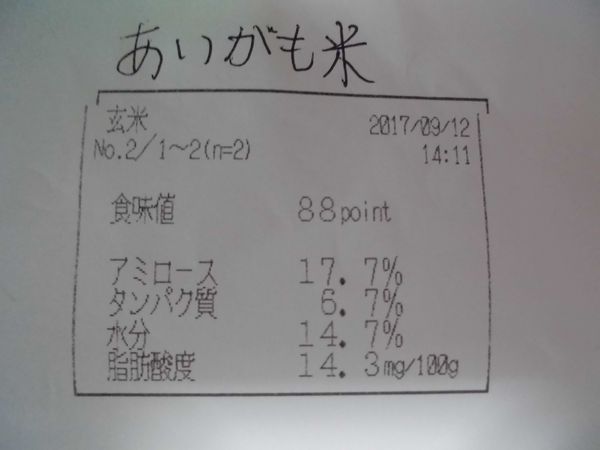 あいがも米
玄米 2017/09/12
No.2/1～2(n=2) 14:11
食味値 88point
アミロース 17.7%
タンパク質 6.7%
水分 14.7%
脂肪酸度 14.3mg/100g